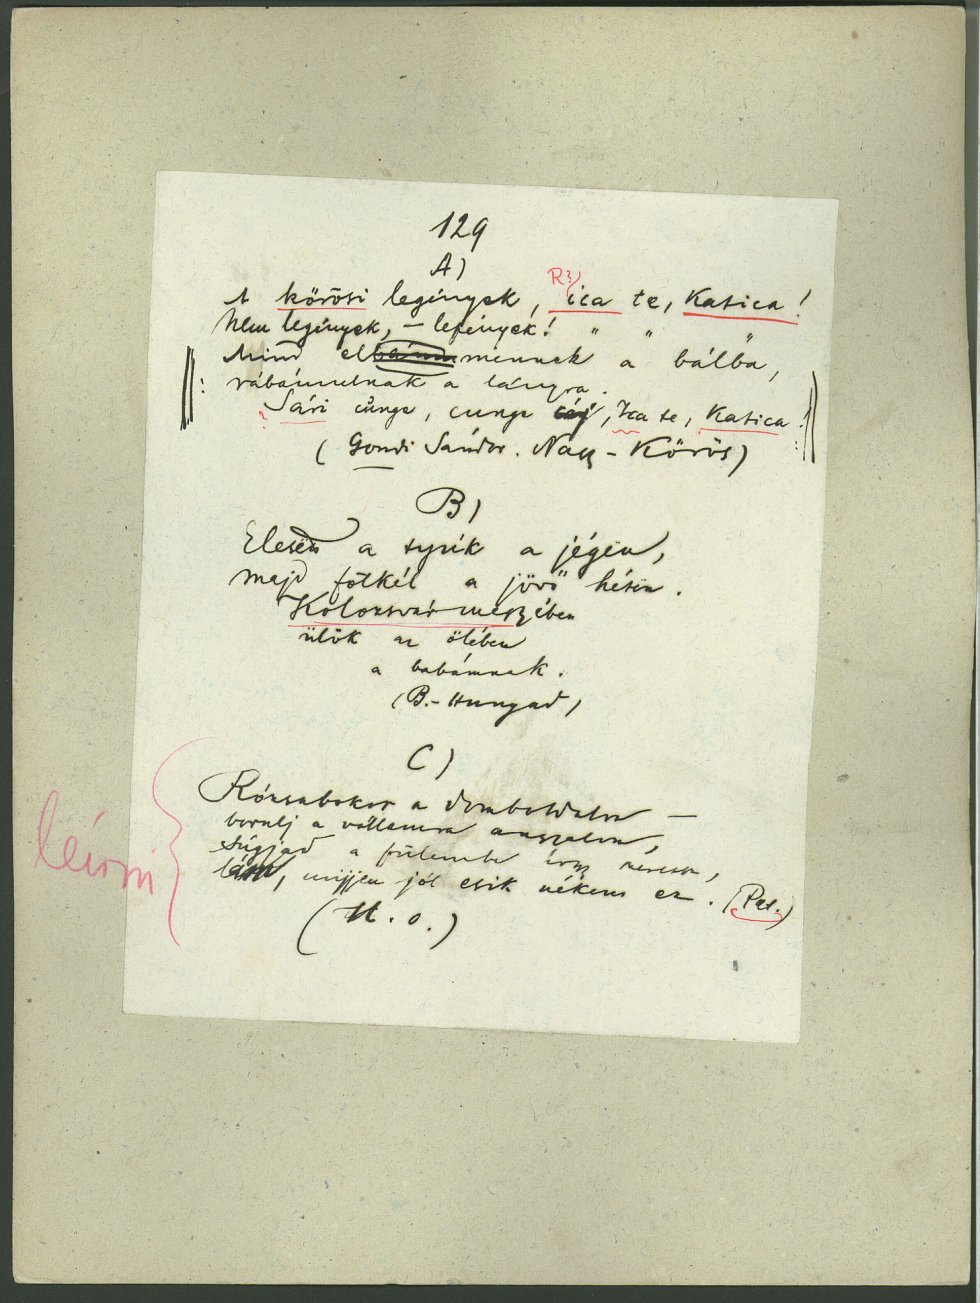 129
A)
R?
A kőrösi legények, ica te, Katica!
Nem legények, – lepények! " " "
Mind elmennek a bálba,
rábámulnak a lányra.
? Sári cunge, cunge, Ica te, Katica!
(Gondi Sándor. Nagy-Kőrös)
B)
Elesën a tyúk a jégën,
majd fötkél a jövő hétën.
Kolozsvár mezejében
ülök az ölében
a babámnak.
(B.-Hunyad)
C)
Rózsabokor a domboldalon –
borulj a vállamra angyalom,
súgjad a fülembe
leírni
jól esik nékem ez. (Pat.)
(U. o.)